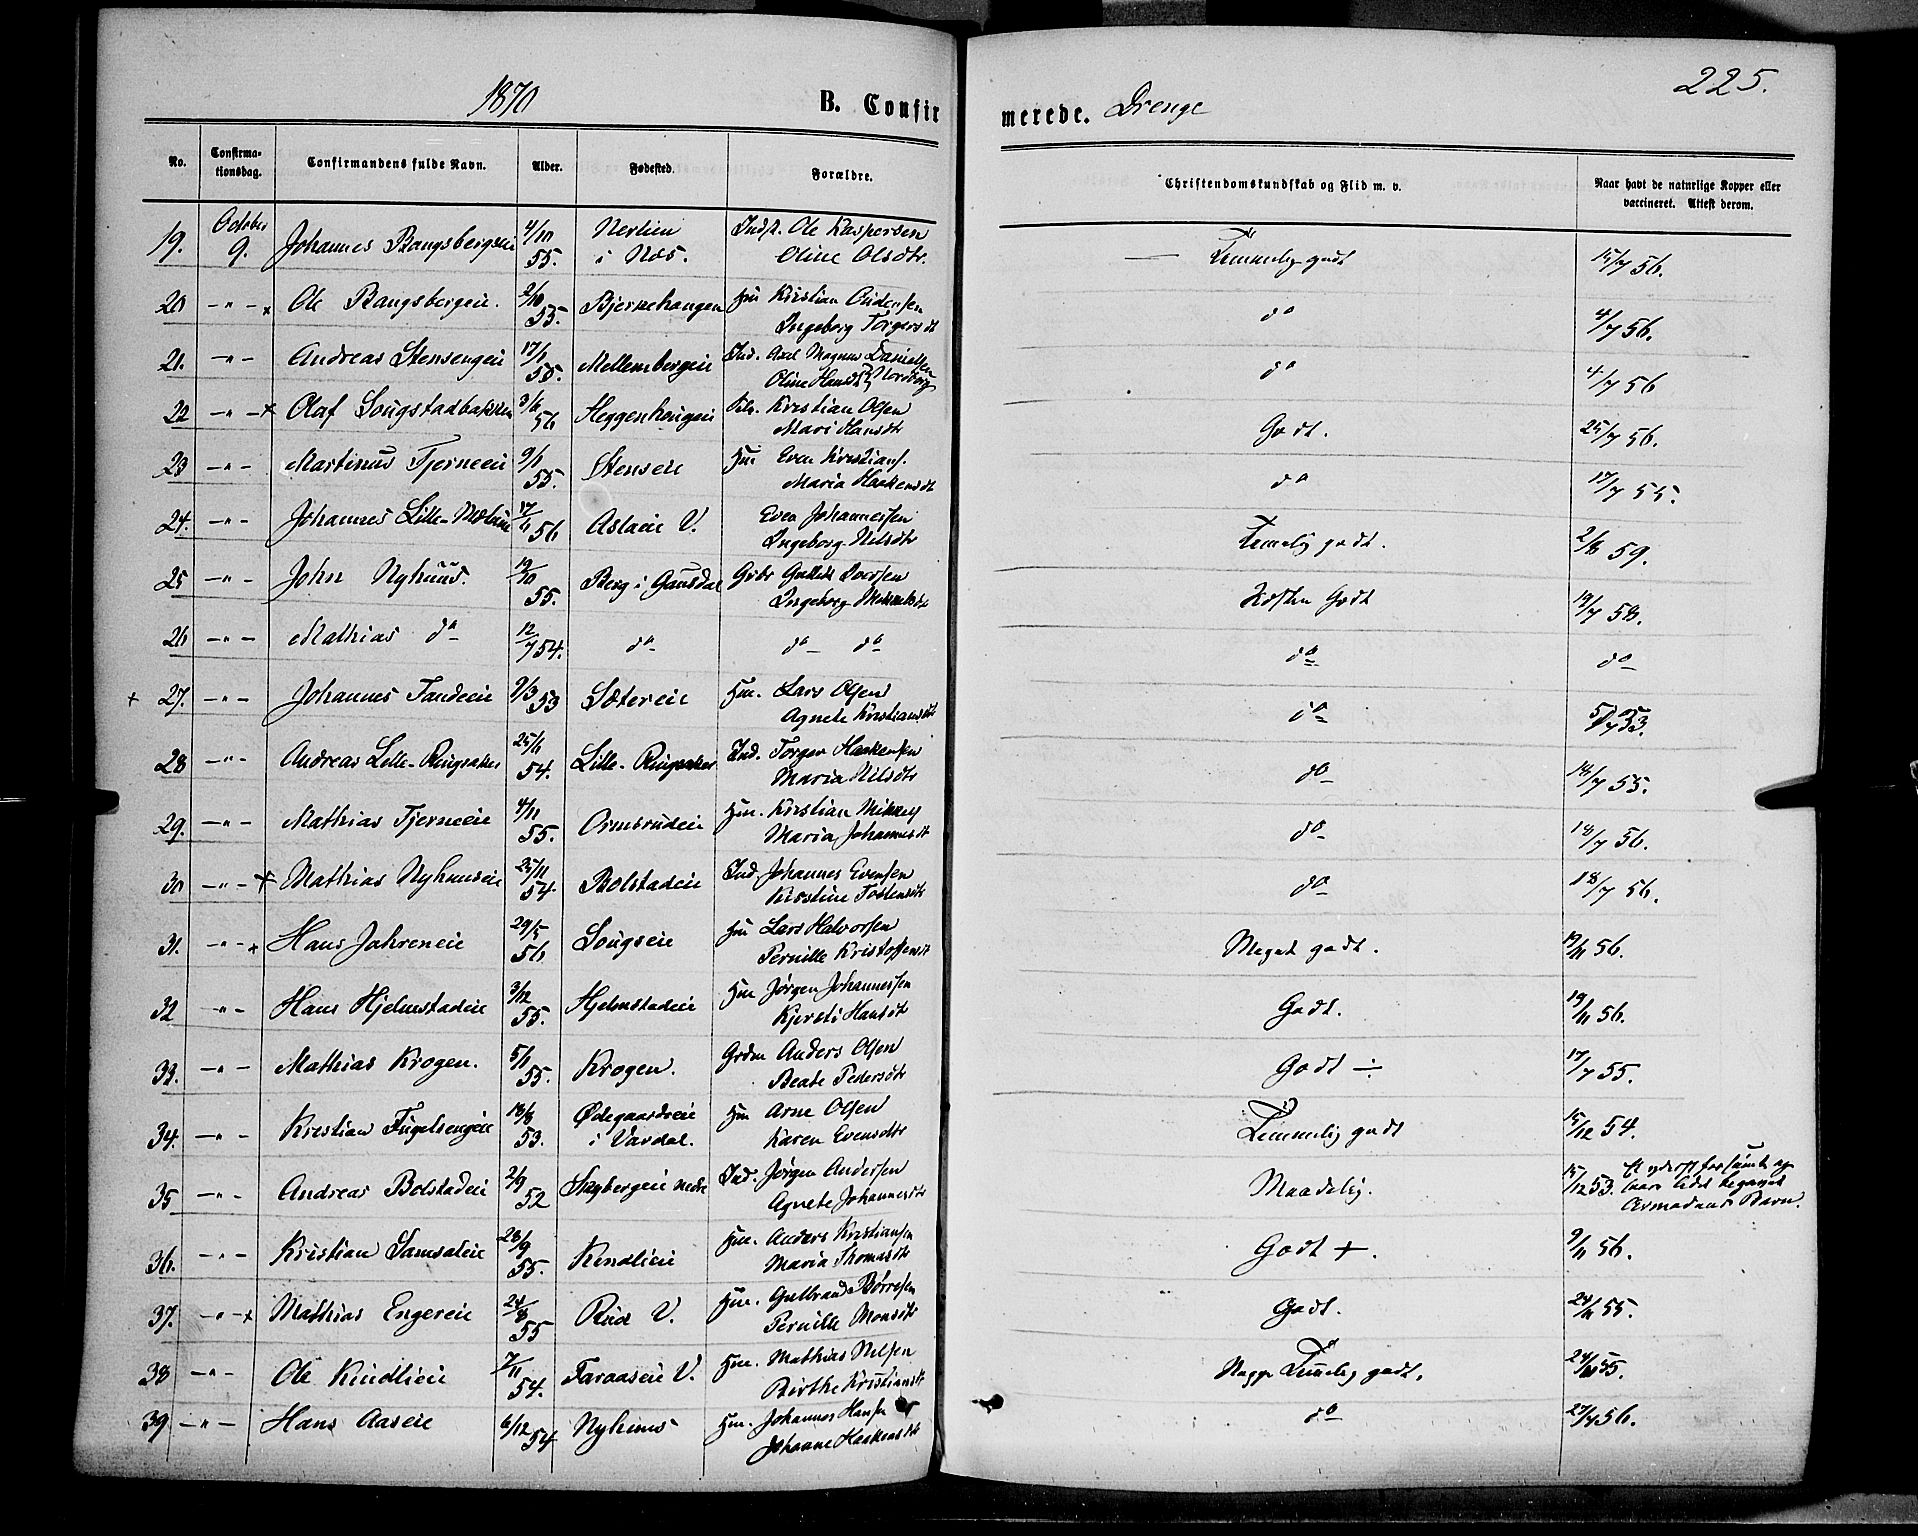 1870
B. Confirmerede. Drenge
225.
No.
Confirma-
tionsdag.
Confirmandens fulde Navn.
Alder.
Fødested.
Forældre.
Christendomskundskab og Flid m. v.
Naar havt de naturlige Kopper eller
vaccineret. Attest derom.
19. October 9. Johannes Bangsbergeie 4/10 55. i Næs. Inds. Ole Kaspersen Oline Olsdtr. Temmelig godt 15/7 56.
20 -"- x Ole Bangsbergeie. 2/10 55. Bjernehaugen Hm Kristian Andersen Ingeborg Torgersdt do 4/7 56.
21. -"- Andreas Stensengeie 17/1 55. Mellembergeie Ind. Axel Magnus Danielsen Nordberg Oline Hansdt do 4/7 56
22 -"- x Olaf Sougstadbakken 3/6 56 Heggenhougeie Kristian Olsen Mari Hansdtr Godt. 25/7 56.
23 -"- Martinus Tjerneeie 9/1 55. Stenseie Hm Even Kristians. Maria Haakensdt do 17/7 55.
24. -"- Johannes Lille-Mælum 56 Aslaeie V. Even Johannessen Ingeborg Nilsdtr Temelig godt. 2/8 59.
25 -"- John Nyhuus. 19/10 55. Berg i Gausdal Ingeborg Mikkelsdt Næsten Godt 19/7 58.
26 -"- Mathias do 12/7 54. do do do do do
+ 27. -"- Johannes Tandeeie 9/3 53 Sætereie Hm. Lars Olsen Agnete Kristiansdt do
28 -"- Andreas Lille-Ringsaker 25/1 54. Lille-Ringsaker Ind. Torger Haakensen Maria Nilsdtr do 18/7 55.
29. -"- Mathias Tjerneeie 4/11 55. Ormsrudeie Hm. Kristian Mikkels Maria Johannesdt do 18/7 56.
30 -"- x Mathias Nyhuuseie 25/11 54 Bolstadeie Ind. Johannes Evensen Kirstine Tostensdtr do 18/7 56.
31. -"- x Hans Jahreneie 29/5 56 Sougseie Hm Lars Halvorsen Pernille Kristoffersdt Meget godt. 19/11 56.
32 -"- Hans Hjelmstadeie 3/12 55. Hjelmstadeie Hm Jørgen Johannessen Kjersti Hansdt Godt. 19/11 56.
33. -"- Mathias Krogen. 5/1 55. Krogen. Grdm Anders Olsen Beate Pedersdtr Godt ÷ 17/7 55.
34. -"- Kristian Fuglsengeie 18/8 53. Ødegaardseie i Vardal. Hm Arne Olsen Karen Evensdtr Temmelig godt 15/12 54.
35 -"- Andreas Bolstadeie 2/9 52 Skybergeie nedre Ind. Jørgen Andersen Agnete Johannesdtr Maadelig. 15/12 53. Et yderst forsømt og saare lidet begavet Almodens Barn.
36. -"- Kristian Samsaleie 28/9 55. Kindlieie Hm. Anders Kristiansen Maria Thomasdt Godt +. 9/11 56.
37. -"- x Mathias Engereie 24/8 55 Rud V. Hm. Gulbrand Børresen Pernille Monsdtr Godt. 24/11 55.
38 -"- Ole Kindlieie 7/11 54. Faraaseie V. Hm. Mathias Nilsen Birthe Kristiansdt Neppe Temelig godt. 24/11 55.
39 -"- Hans Aaseie 6/12 54 Nyhuus Hm. Johannes Hansen Johanne Haakensdt do 27/7 56.